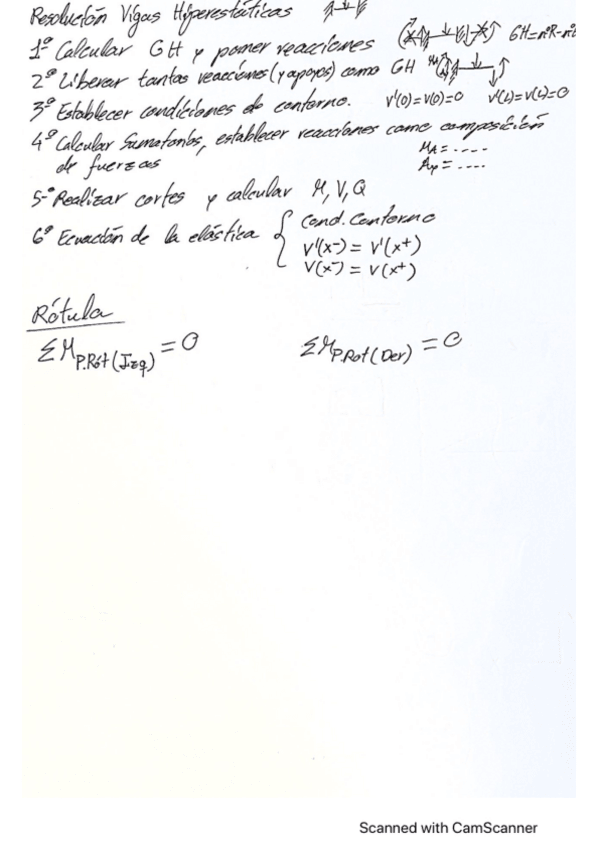 Resolución Vigas Hiperestáticas
1º Calcular GH y poner reacciones GH=nºR-nº
2º Liberar tantas reacciones (y apoyos) como GH
3º Establecer condiciones de contorno. V'(0)=V(0)=0 V'(L)=V(L)=0
4º Calcular Sumatorios, establecer reacciones como composición
de fuerzas
MA = ....
Ay = ....
5º Realizar cortes y calcular M, V, Q
6º Ecuación de la elástica { Cond. Contorno
V'(x-) = V'(x+)
V(x-) = V(x+)
Rótula
ΣM P.Rót (Izq) = 0 ΣM P.Rot (Der) = 0
Scanned with CamScanner